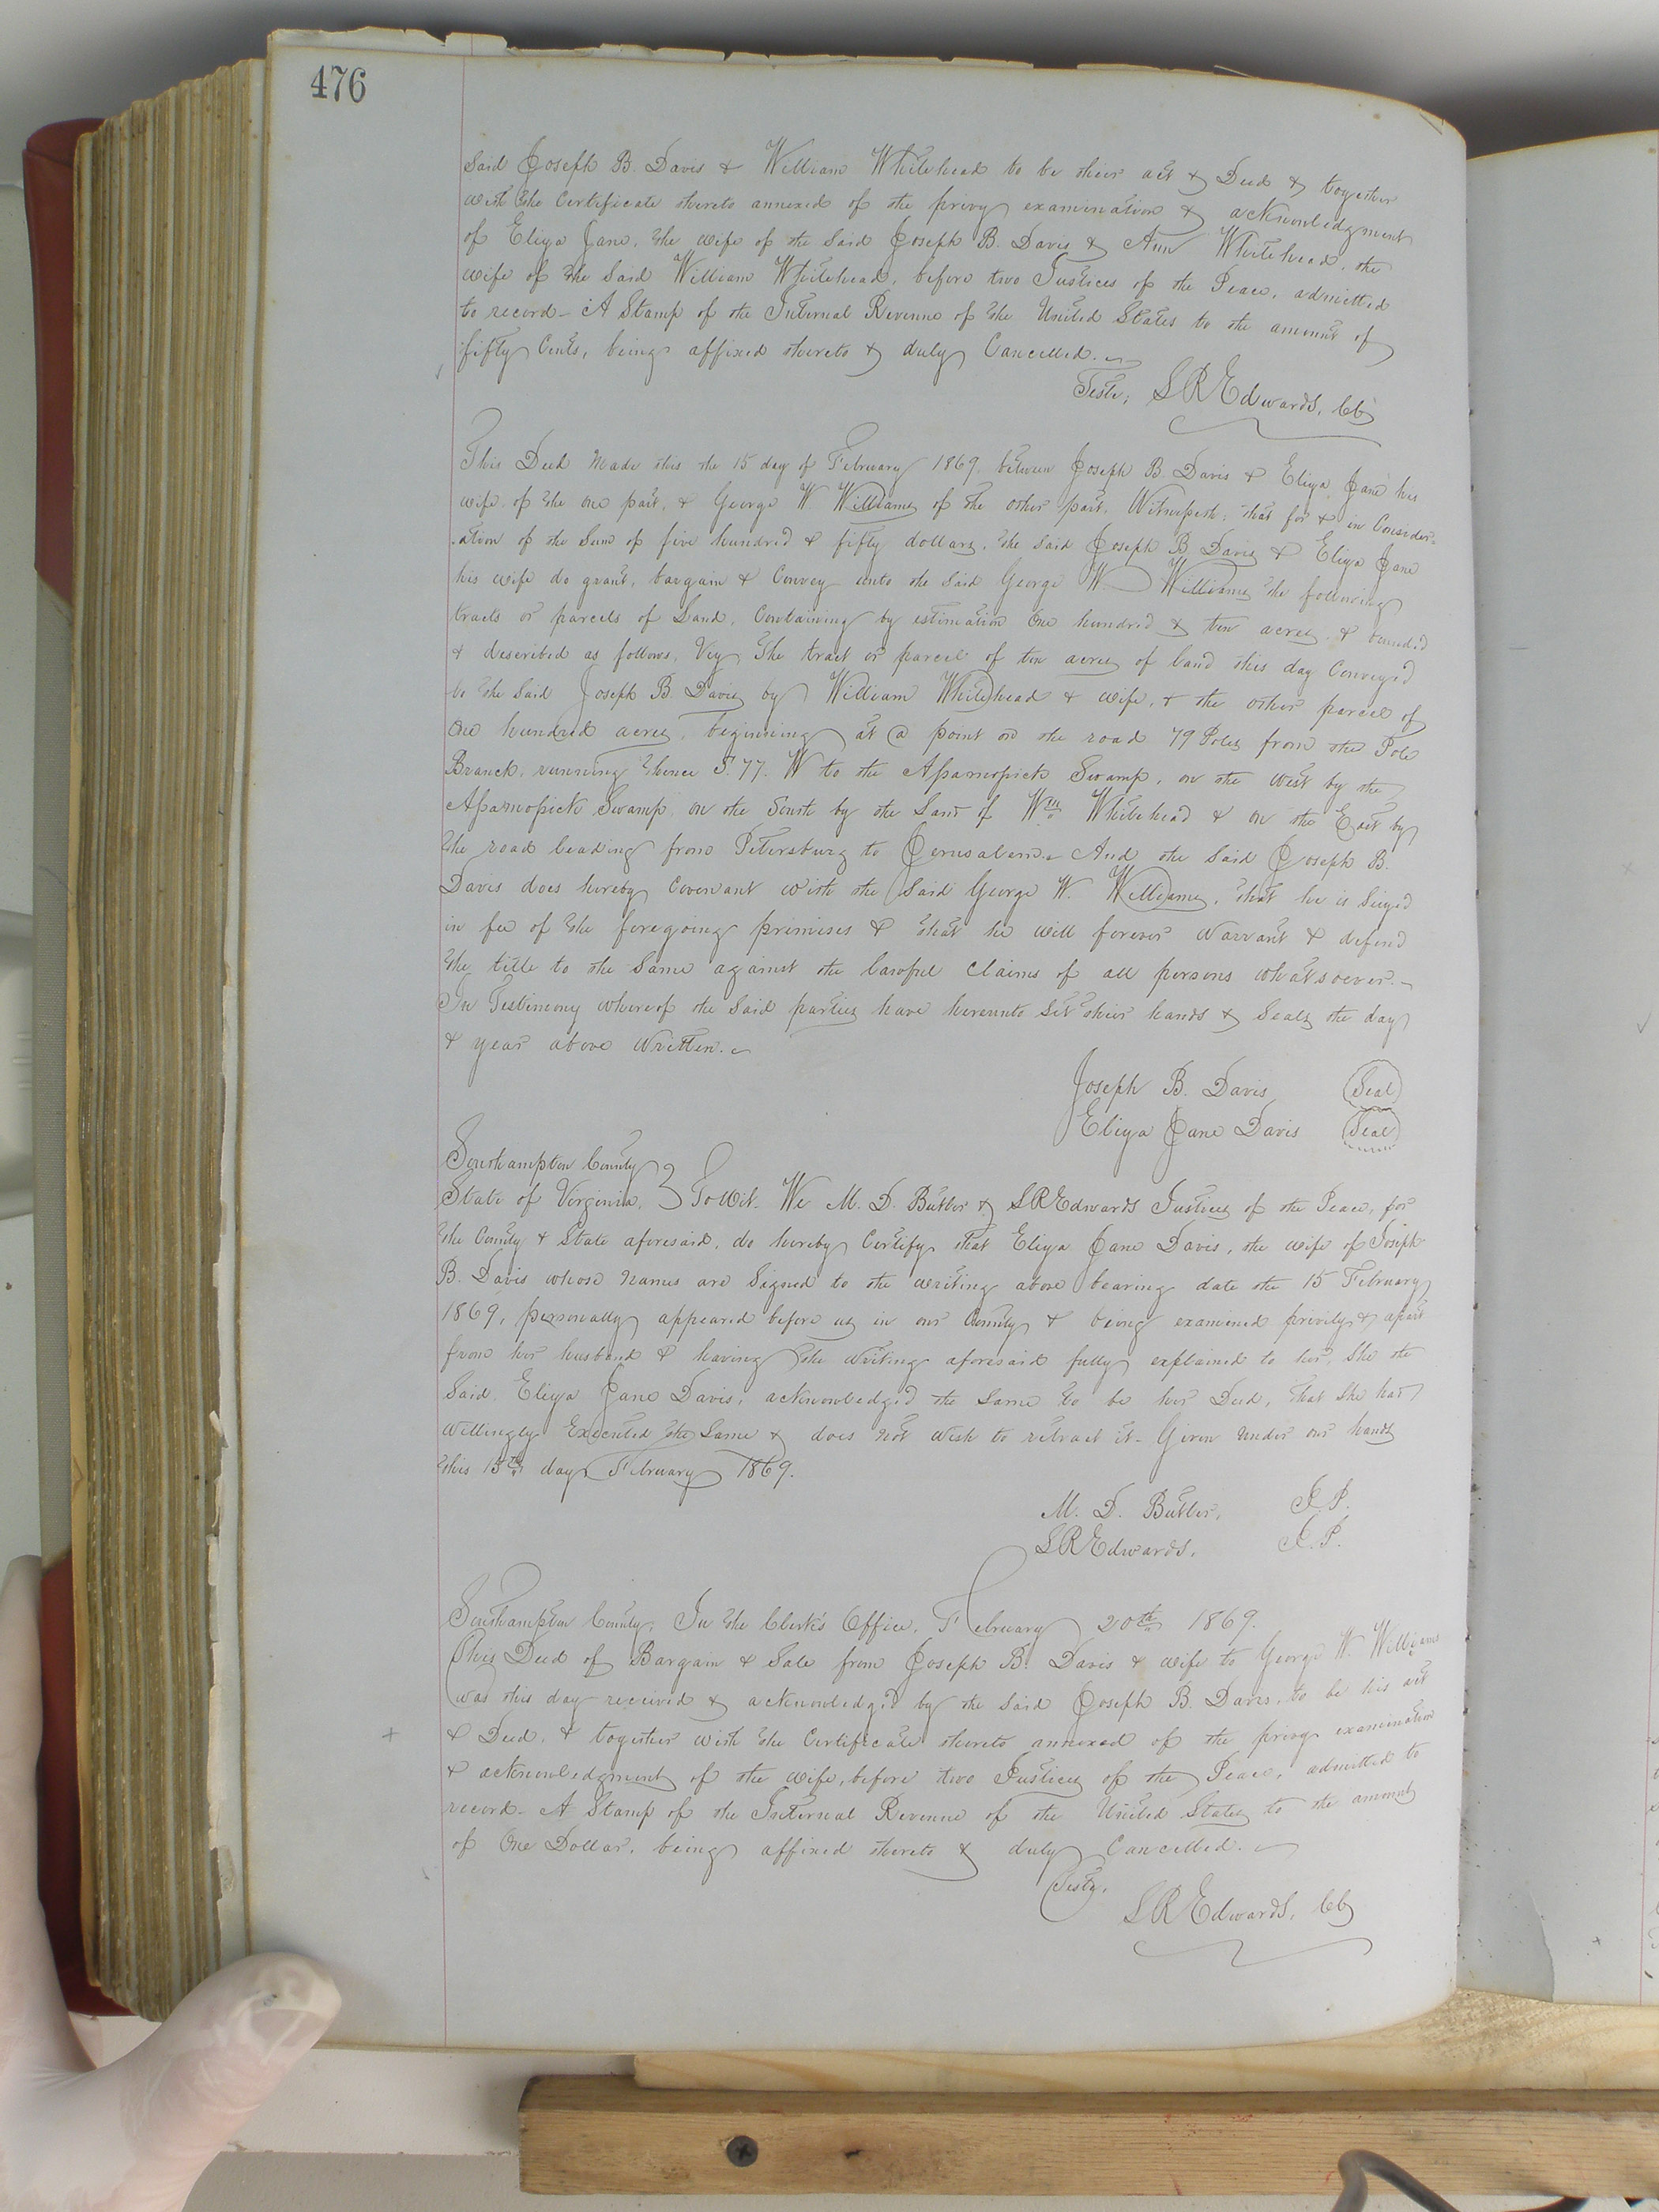 476
Said Joseph B. Davis & William Whitehead to be their act & Deed & together
with the Certificate thereto annexed of the privy examination & acknowledgment
of Eliza Jane, the wife of the Said Joseph B. Davis & Ann Whitehead, the
wife of the Said William Whitehead, before two Justices of the Peace, admitted
to record - A Stamp of the Internal Revenue of the United States to the amount of
fifty Cents, being affixed thereto & duly Cancelled.
Teste; L R Edwards,
This Deed Made this the 15 day of February 1869, between Joseph B. Davis & Eliza Jane his
wife, of the one part, & George W Williams of the other part. Witnesseth; that for & in Consider-
ation of the Sum of five hundred & fifty dollars, the Said Joseph B. Davis & Eliza Jane
his wife do grant, bargain & Convey unto the Said George W. Williams the following
tracts or parcels of Land, Containing by estimation One hundred & ten acres, & bounded
& described as follows, Viz, The tract or parcel of ten acres of land this day Conveyed
to the Said Joseph B. Davis by William Whitehead & wife, & the other parcel of
One hundred acres, beginning at a point on the road 79 Poles from the Pole
Branch, running thence S. 77. W to the Swamp, on the west by the
Swamp, on the South by the Land of Wm Whitehead & on the East by
the road leading from Petersburg to Jerusalem - And the Said Joseph B.
Davis does hereby Covenant with the Said George W. Williams, that he is Seized
in fee of the foregoing premises & that he will forever Warrant & defend
the title to the Same against the lawful Claims of all persons whatsoever. -
In Testimony whereof the Said parties have hereunto Set their hands & Seals the day
& year above Written.
Joseph B. Davis (Seal)
Eliza Jane Davis (Seal)
Southampton County }
State of Virginia, } To Wit. We M. D. Butler & L R Edwards Justices of the Peace, for
the County & State aforesaid, do hereby Certify that Eliza Jane Davis, the wife of Joseph
B. Davis whose Names are Signed to the writing above bearing date the 15 February
1869, personally appeared before us in our County & being examined privily & apart
from her husband & having the Writing aforesaid fully explained to her, She the
Said Eliza Jane Davis, acknowledged the Same to be her Deed, that She had
Willingly Executed the Same & does not Wish to retract it - Given Under our hands
this 15th day February 1869.
M. D. Butler, J P.
L R Edwards, J. P.
Southampton County; In the Clerk's Office, February 20th 1869.
This Deed of Bargain & Sale from Joseph B. Davis & wife to George W. Williams
Was this day received & acknowledged by the Said Joseph B. Davis, to be his act
& Deed, & together with the Certificate thereto annexed of the privy examination
& acknowledgment of the wife, before two Justices of the Peace, admitted to
record - A Stamp of the Internal Revenue of the United States to the amount
of One Dollar, being affixed thereto & duly Cancelled.
Teste,
L R Edwards,